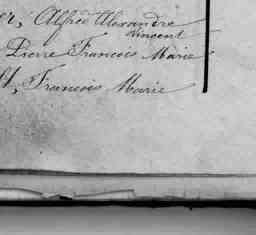 er, Alfred Alexandre
Vincent
Pierre François Marie
lt, François Marie